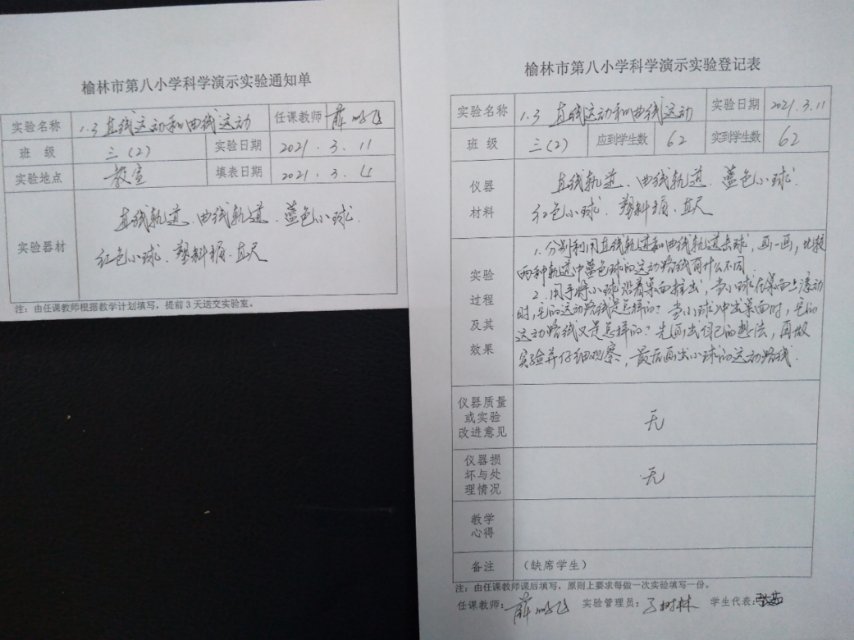 榆林市第八小学科学演示实验通知单
实验名称 1.3 直线运动和曲线运动 任课教师 薛
班 级 三(2) 实验日期 2021.3.11
实验地点 教室 填表日期 2021.3.4
实验器材 直线轨道、曲线轨道、蓝色小球、
红色小球、塑料瓶、直尺
注：由任课教师根据教学计划填写，提前3天送交实验室。
榆林市第八小学科学演示实验登记表
实验名称 1.3 直线运动和曲线运动 实验日期 2021.3.11
班 级 三(2) 应到学生数 62 实到学生数 62
仪器 直线轨道、曲线轨道、蓝色小球、
材料 红色小球、塑料瓶、直尺
实验
过程
及其
效果
1.分别利用直线轨道和曲线轨道 球，画一画，比较
两种轨道中蓝色球的运动路线有什么不同
2.用手将小球沿着桌面推出，当小球在桌面上滚动
时，它的运动路线是怎样的？当小球冲出桌面时，它的
运动路线又是怎样的？先画出自己的想法，再做
实验并仔细观察，最后画出小球的运动路线.
仪器质量
或实验
改进意见
无
仪器损
坏与处
理情况
无
教学
心得
备注 （缺席学生）
注：由任课教师课后填写，原则上要求每做一次实验填写一份。
任课教师：薛 实验管理员： 树林 学生代表：